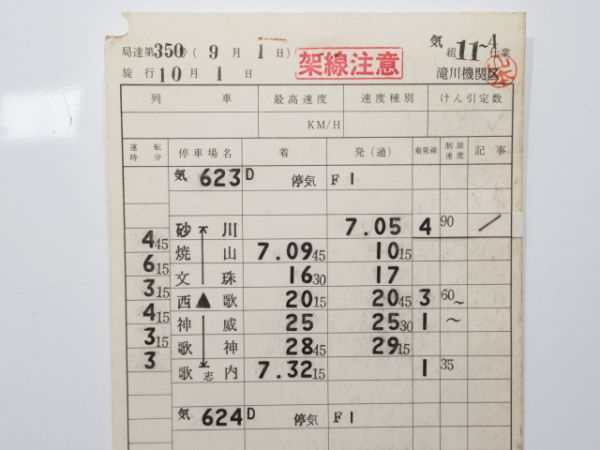 局達第350号(9月1日) 架線注意 気組11~4仕業
施行10月1日 滝川機関区
列車 最高速度 速度種別 けん引定数
KM/H
運転時分 停車場名 着 発(通) 着発線 制限速度 記事
気 623D 停気 F1
砂川 7.05 4 90
4 45
焼山 7.09 45 10 15
6 15
文珠 16 30 17
3 15
西歌 20 15 20 45 3 60~
4 15
神威 25 25 30 1 ~
3 15
歌神 28 45 29 15
3
歌志内 7.32 15 1 35
気 624D 停気 F1